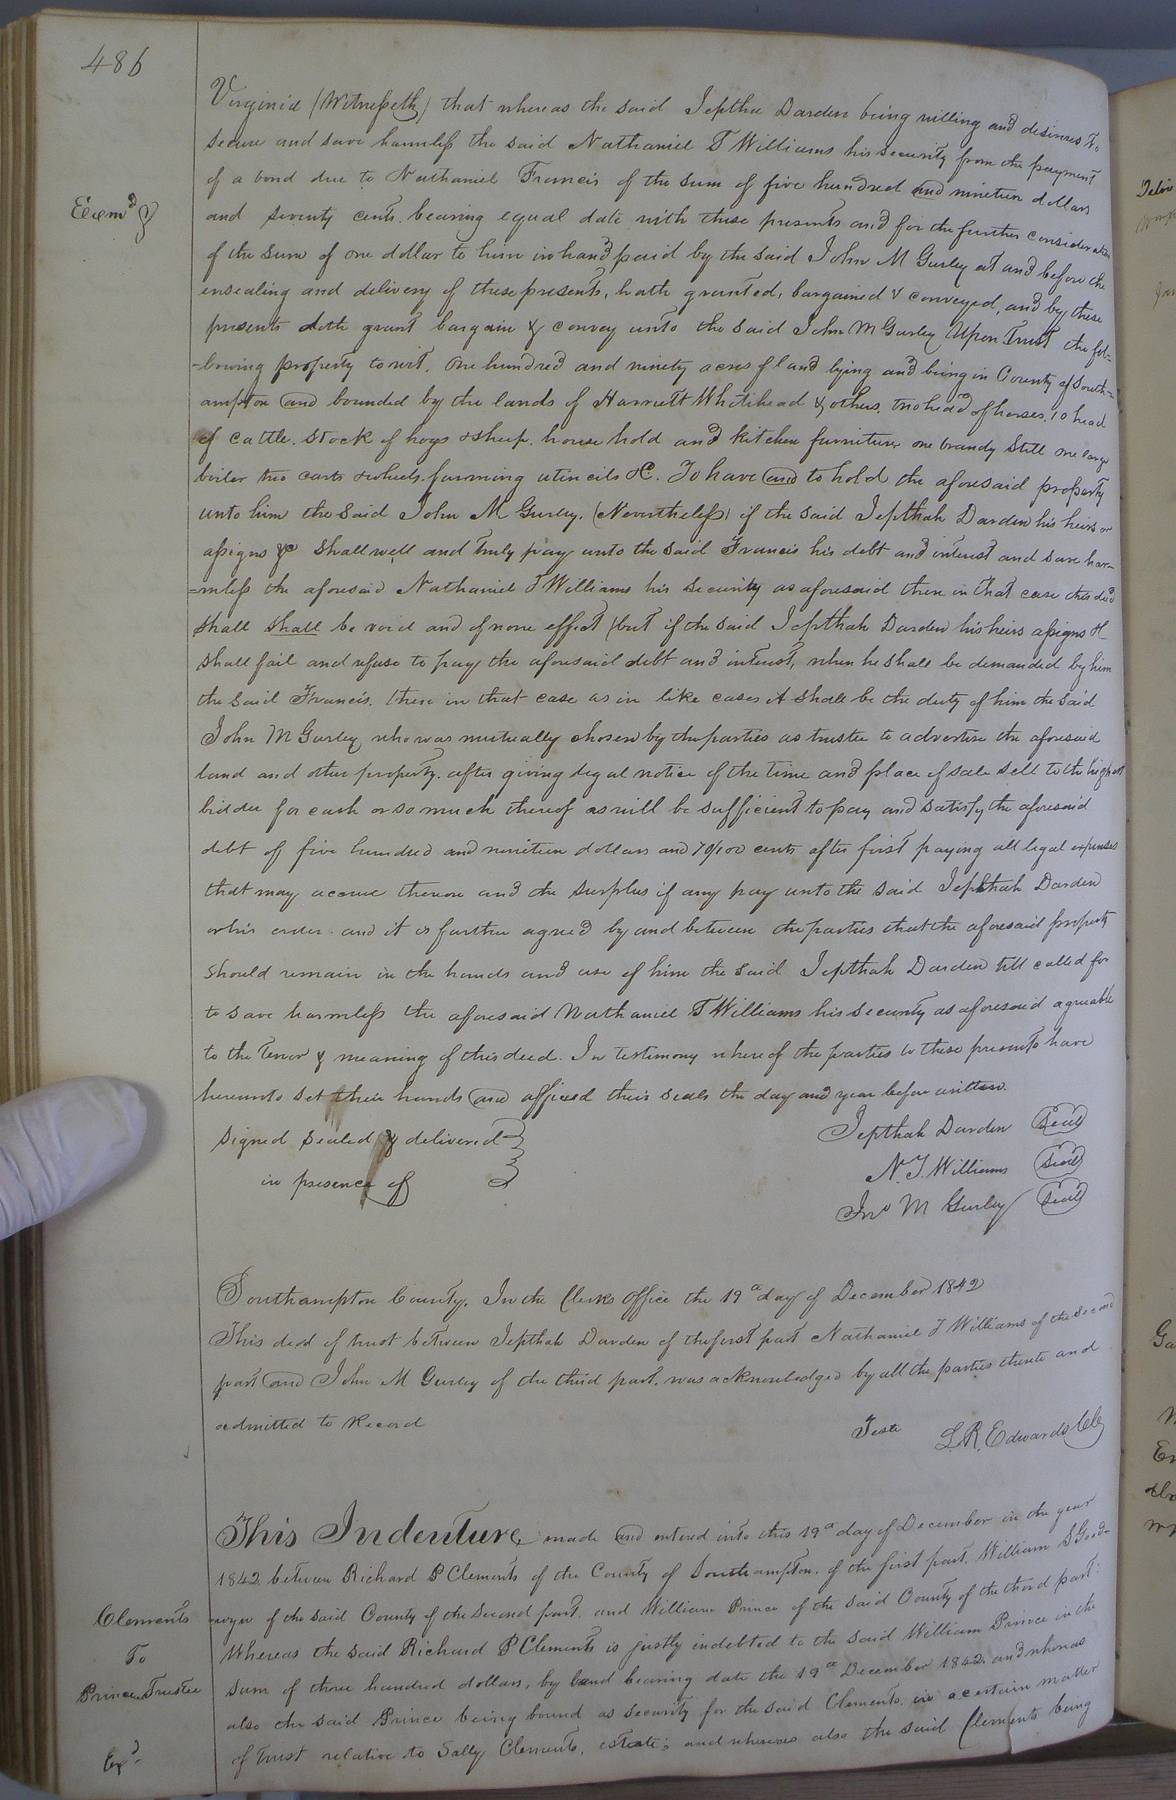 486
Virginia (Witnesseth) that whereas the said Jepthae Darden being willing and desirous to
secure and save harmless the said Nathaniel T Williams his security from the payment
of a bond due to Nathaniel Francis of the sum of five hundred and nineteen dollars
Exam^d
and seventy cents, bearing equal date with these presents and for the further consideration
of the sum of one dollar to him in hand paid by the said John M Gurley at and before the
ensealing and delivery of these presents, hath granted, bargained & conveyed, and by these
presents doth grant bargain & convey unto the said John M Gurley Upon Trust the fol-
-lowing property to wit, one hundred and ninety acres of land lying and being in County of South-
ampton and bounded by the lands of Harriett Whitehead & others, two head of horses, 10 head
of cattle, stock of hogs & sheep, house hold and kitchen furniture one brandy Still one large
boiler two carts & wheels, farming utencils &c. To have and to hold the aforesaid property
unto him the said John M Gurley. (Nevertheless) if the said Jepthah Darden his heirs or
assigns &c shall well and truly pay unto the said Francis his debt and interest and save har-
=mless the aforesaid Nathaniel T Williams his security as aforesaid then in that case this deed
shall shall be void and of none effect (but if the said Jepthah Darden his heirs assigns &c
shall fail and refuse to pay the aforesaid debt and interest, when he shall be demanded by him
the said Francis, then in that case as in like cases it shall be the duty of him the said
John M Gurley who was mutually chosen by the parties as trustee to advertise the aforesaid
land and other property, after giving legal notice of the time and place of sale sell to the highest
bidder for cash or so much thereof as will be sufficient to pay and satisfy the aforesaid
debt of five hundred and nineteen dollars and 70/100 cents after first paying all legal expenses
that may accrue thereon and the surplus if any pay unto the said Jepthah Darden
or his order and it is further agreed by and between the parties that the aforesaid property
should remain in the hands and use of him the said Jepthah Darden till called for
to save harmless the aforesaid Nathaniel T Williams his security as aforesaid agreeable
to the tenor & meaning of this deed. In testimony whereof the parties to these presents have
hereunto set their hands and affixed their seals the day and year before written.
Signed Sealed & delivered } Jepthah Darden (Seal)
in presence of N. T. Williams (Seal)
Jno M Gurley (Seal)
Southampton County, In the Clerks Office the 19^d day of December 1842
This deed of trust between Jepthah Darden of the first part Nathaniel T Williams of the second
part and John M Gurley of the third part, was acknowledged by all the parties thereto and
admitted to Record
Teste L. R. Edwards Clk
This Indenture made and entered into this 19^d day of December in the year
1842 between Richard P Clements of the County of Southampton, of the first part, William S Good-
Clements
-wyn of the said County of the second part, and William Prince of the said County of the third part:
To
Whereas the said Richard P Clements is justly indebted to the said William Prince in the
Prince Trustee
sum of three hundred dollars, by bond bearing date the 19^d December 1842, and whereas
also the said Prince being bound as security for the said Clements, in a certain matter
Ex^d
of trust relative to Sally Clements, estate; and whereas also the said Clements being